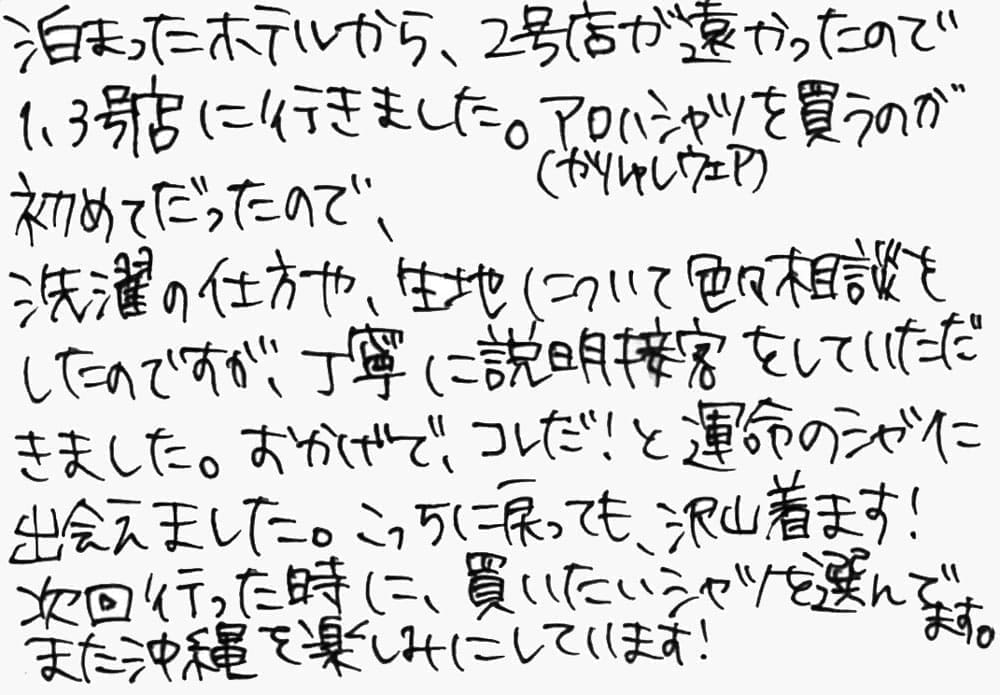 泊まったホテルから、2号店が遠かったので
1、3号店に行きました。アロハシャツを買うのが
(かりゆしウェア)
初めてだったので、
洗濯の仕方や、生地について色々相談を
したのですが、丁寧に説明接客をしていただ
きました。おかげで、コレだ!と運命のシャツに
出会えました。こっちに戻っても、沢山着ます!
次回行った時に、買いたいシャツを選んで
ます。
また沖縄を楽しみにしています!